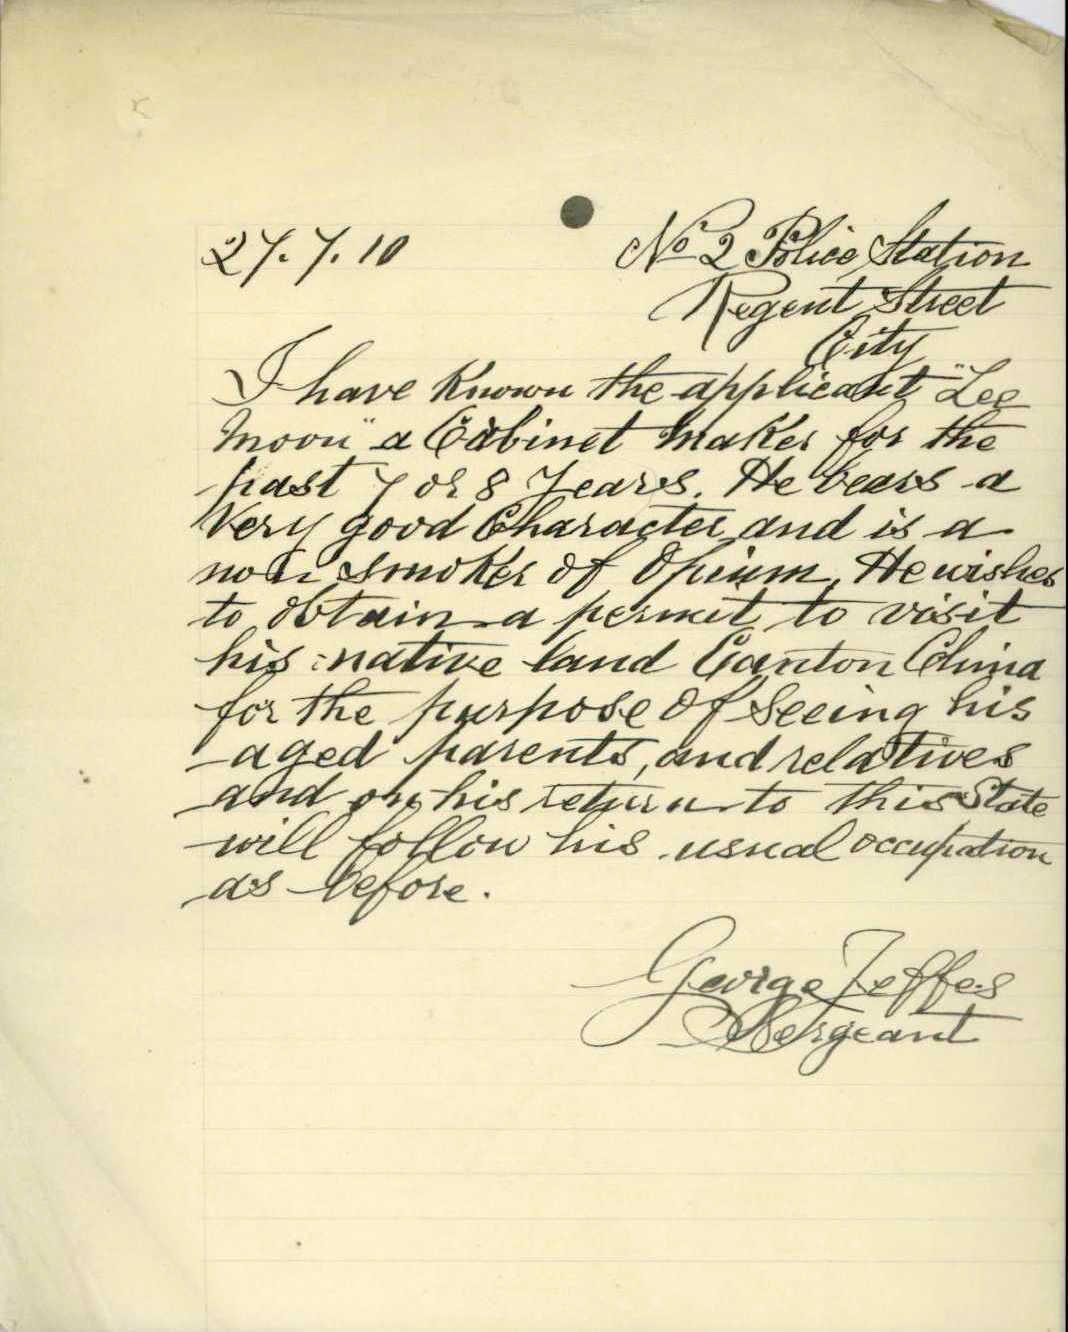 27.7.10
No 2 Police Station
Regent Street
City
I have Known the applicant "Lee
Moon" a Cabinet Maker for the
past 7 or 8 Years. He bears a
Very good Character and is a
non smoker of Opium, He wishes
to obtain a permit to visit
his native land Canton China
for the purpose of Seeing his
aged parents, and relatives
and on his return to this State
will follow his usual occupation
as before.
George Jeffes
Sergeant